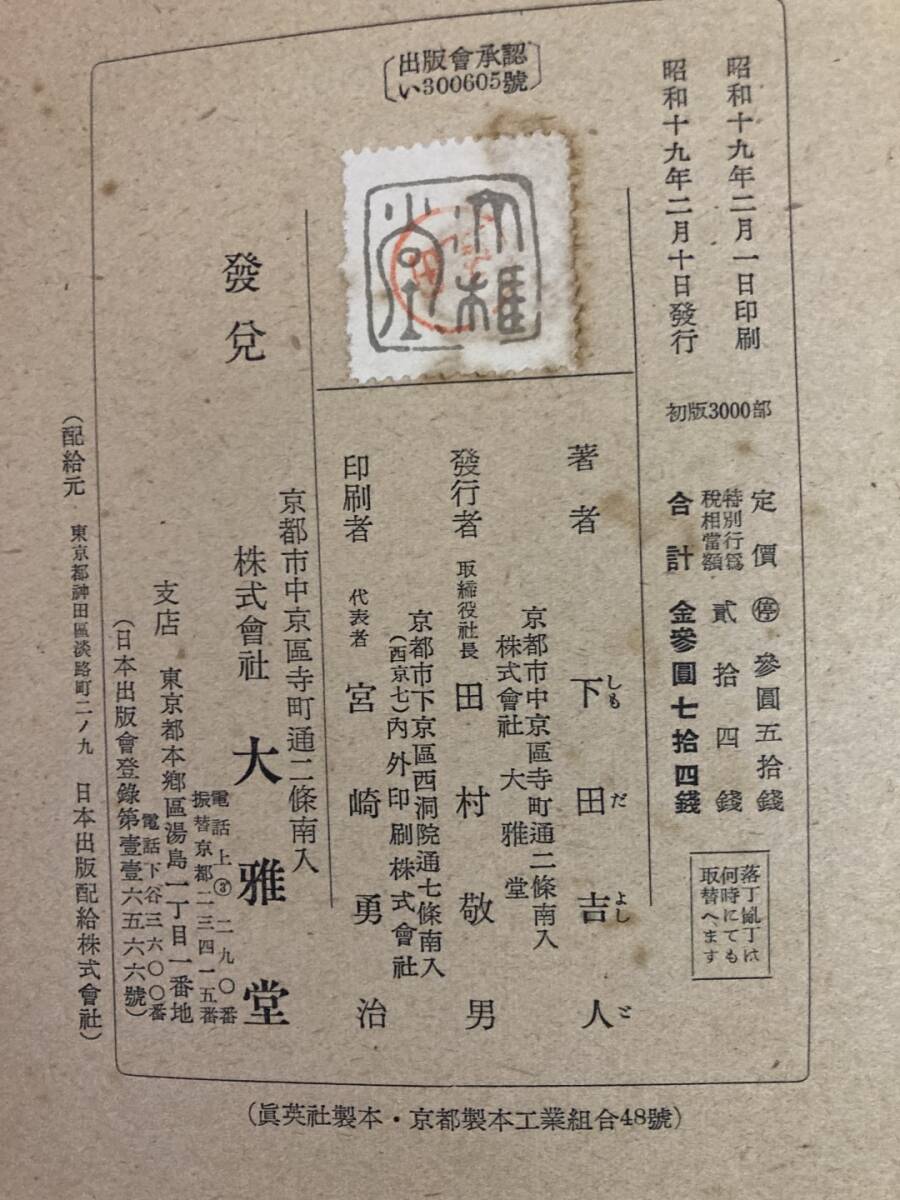 〔出版會承認
い300605號〕
昭和十九年二月一日印刷
昭和十九年二月十日發行
初版3000部
定價 ㊡ 參圓五拾錢
特別行爲
稅相當額 貳拾四錢
合計 金參圓七拾四錢
落丁亂丁は
何時にても
取替へます
大雅堂
著者 下田吉人
しもだよしと
京都市中京區寺町通二條南入
株式會社 大雅堂
發行者 取締役社長 田村敬男
京都市下京區西洞院通七條南入
(西京七)內外印刷株式會社
印刷者 代表者 宮崎勇治
京都市中京區寺町通二條南入
發兌 株式會社 大雅堂
電話上③二九〇番
振替京都二三四一五番
支店 東京都本鄕區湯島一丁目一番地
電話下谷三六〇〇番
(日本出版會登錄第壹壹六五六六號)
(配給元 東京都神田區淡路町二ノ九 日本出版配給株式會社)
(眞英社製本・京都製本工業組合48號)